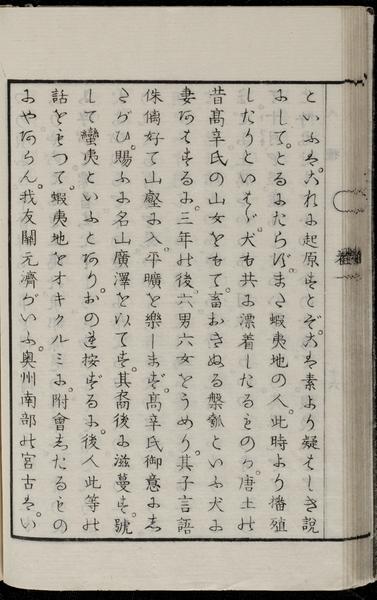 といふは。これに起原すとぞ。こは素より疑はしき說
にして。とるにたらず。また蝦夷地の人。此時より播殖
したりといはゞ。犬も共に漂着したるものか。唐土の
昔高辛氏の山女をもて。畜おきぬる槃瓠といふ犬に
妻あはするに。三年の後。六男六女をうめり。其子言語
侏 好て山壑に入。平曠を樂しまず。高辛氏御意にし
たがひ。賜ふに名山廣澤を以てす。其裔後に滋蔓す。號
して蠻夷といふとあり。おのれ按ずるに。後人此等の
話をもつて。蝦夷地をオキクルミに。附會したるもの
にやあらん。我友關元濟がいふ。奥州南部の宮古は。い